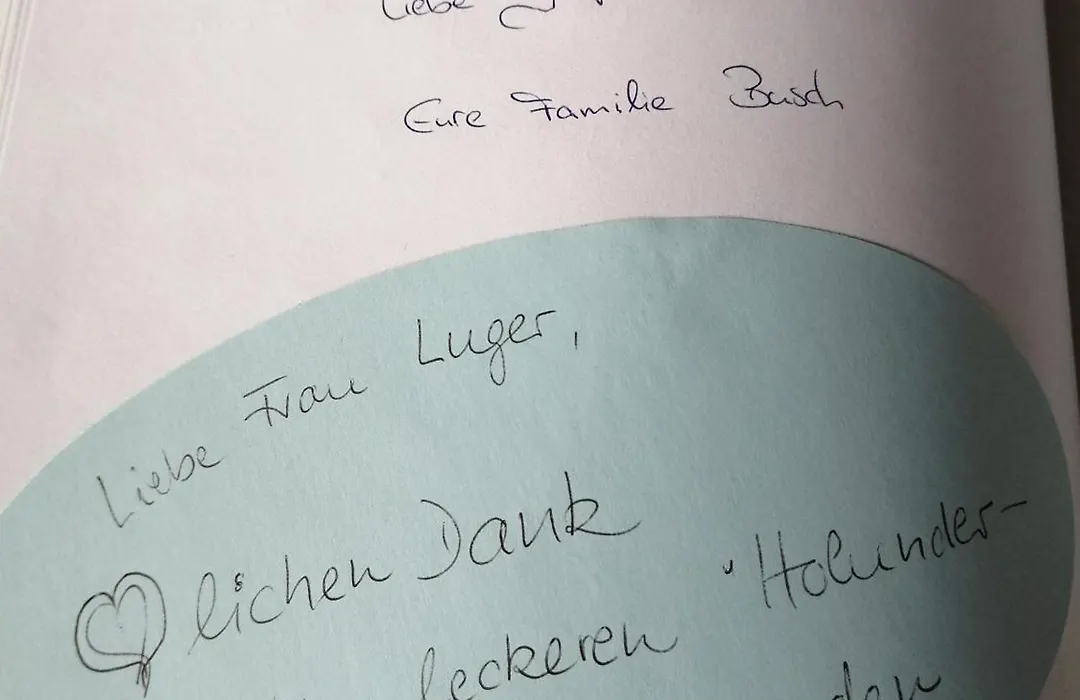 Liebe
Eure Familie Busch
Liebe Frau Luger,
♡lichen Dank
leckeren "Holunder-
den